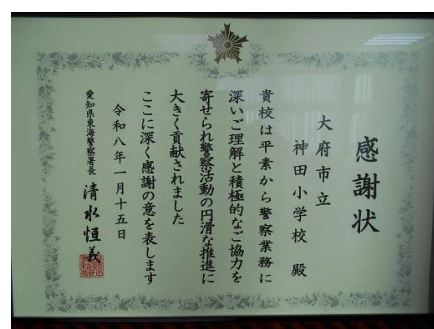 感謝状
大府市立
神田小学校 殿
貴校は平素から警察業務に
深いご理解と積極的なご協力を
寄せられ警察活動の円滑な推進に
大きく貢献されました
ここに深く感謝の意を表します
令和八年一月十五日
愛知県東海警察署長 清水恒義